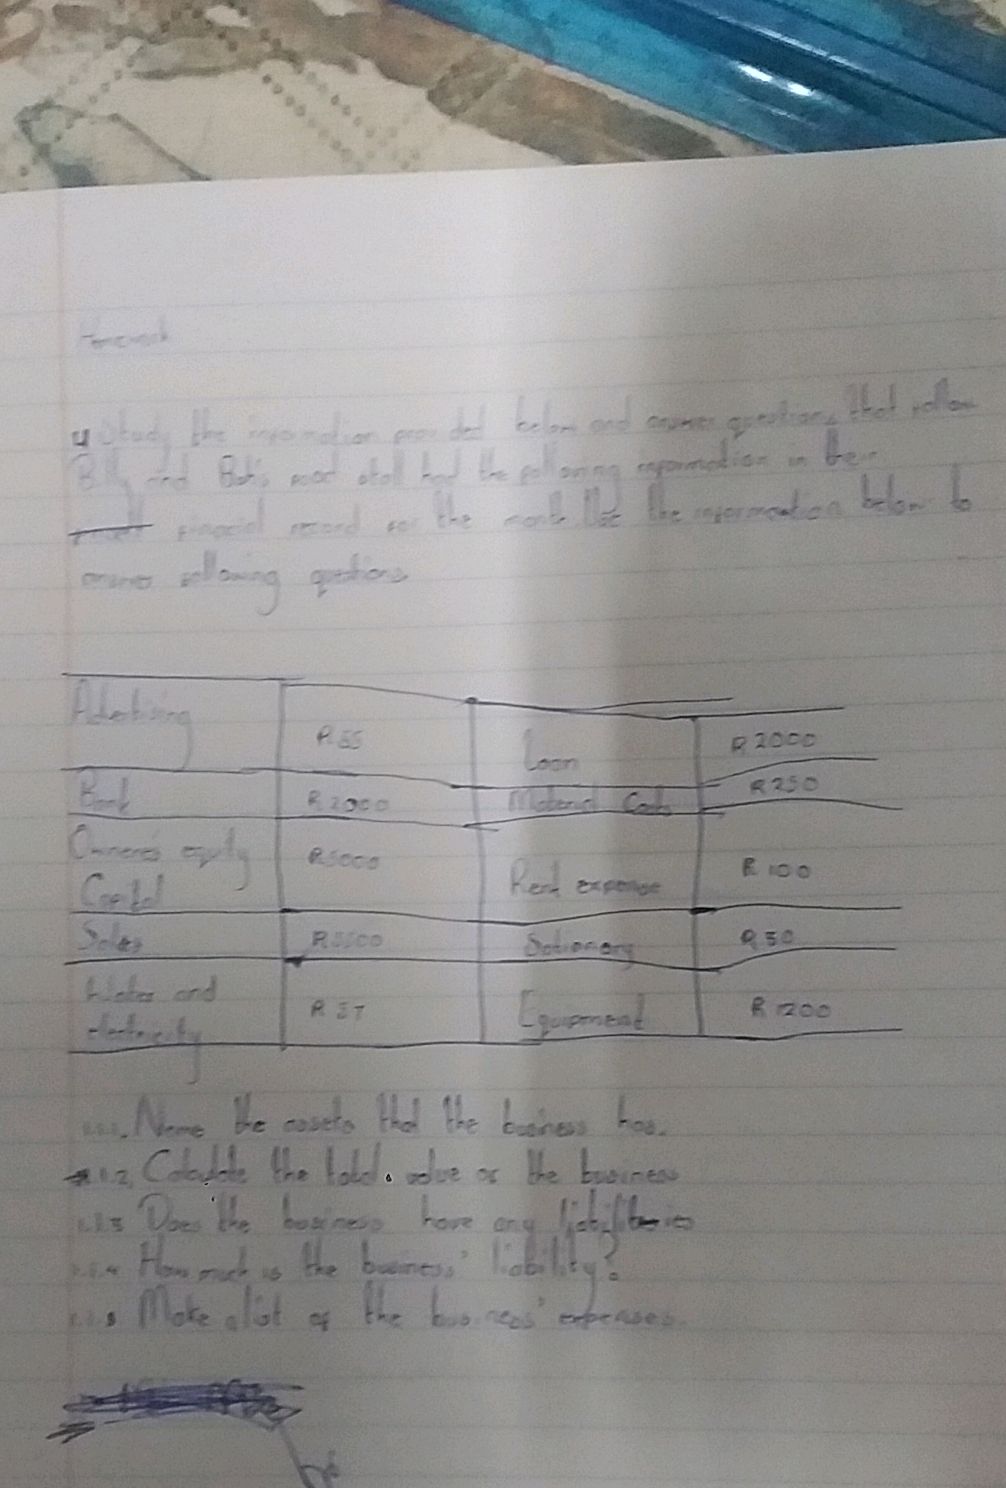 Homework
Study the information provided below and answer questions that follow
Billy and Bob's food stall had the following information in their
financial record for the month Use the information below to
answer following questions
Advertising R55 Loan R2000
Bank R2000 Material Costs R250
Owner's equity Capital R5000 Rent expense R100
Sales R5500 Stationary R50
Water and electricity Equipment R1200
1.1.1. Name the assets that the business has.
1.1.2. Calculate the total value of the business
1.1.3 Does the business have any liabilities
1.1.4 How much is the business' liability?
1.1.5 Make a list of the business' expenses.